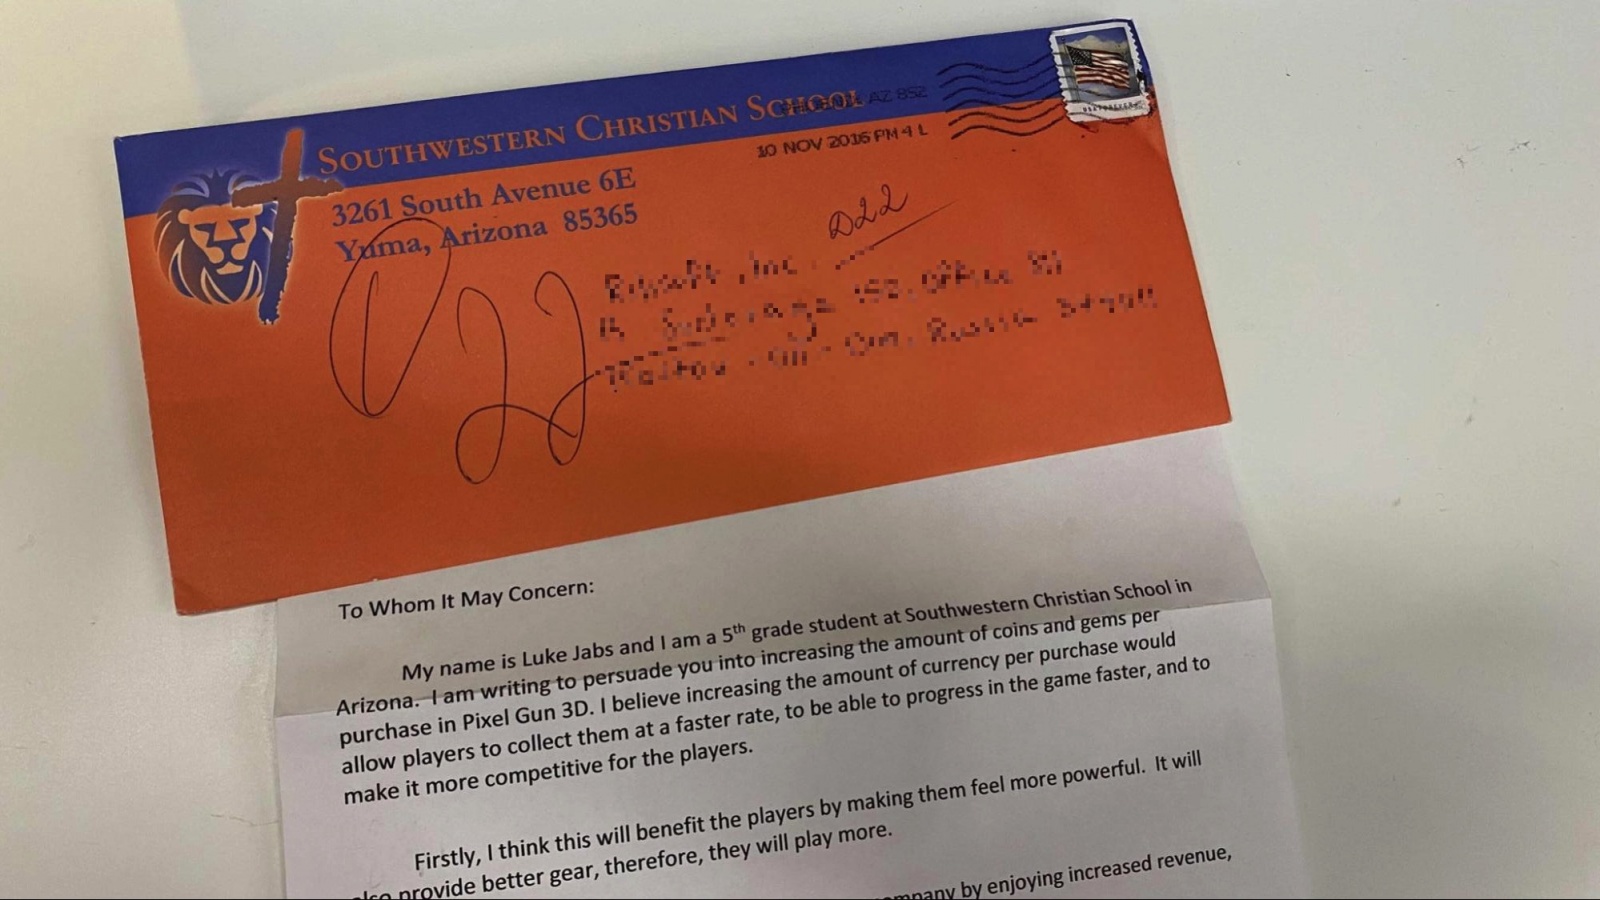 SOUTHWESTERN CHRISTIAN SCHOOL
3261 South Avenue 6E
Yuma, Arizona 85365
AZ 852
10 NOV 2016 PM 4 L
D22
D22
To Whom It May Concern:
My name is Luke Jabs and I am a 5th grade student at Southwestern Christian School in
Arizona. I am writing to persuade you into increasing the amount of coins and gems per
purchase in Pixel Gun 3D. I believe increasing the amount of currency per purchase would
allow players to collect them at a faster rate, to be able to progress in the game faster, and to
make it more competitive for the players.
Firstly, I think this will benefit the players by making them feel more powerful. It will
also provide better gear, therefore, they will play more.
company by enjoying increased revenue,